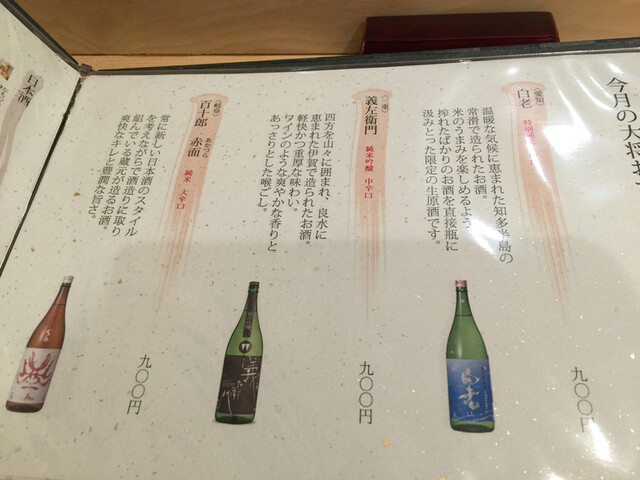 今月の大将お
〈愛知〉
白老
特別
温暖な気候に恵まれた知多半島の
常滑で造られたお酒。
米のうまみを楽しめるよう
搾れたばかりのお酒を直接瓶に
汲みとった限定の生原酒です。
九〇〇円
義左衛門
純米吟醸 中辛口
四方を山々に囲まれ、良水に
恵まれた伊賀で造られたお酒。
軽快かつ重厚な味わい。
ワインのような爽やかな香りと
あっさりとした喉ごし。
九〇〇円
〈岐阜〉
百十郎 赤面
あかづら
純米 大辛口
常に新しい日本酒のスタイル
を考えながらで酒造りに取り
組んでいる蔵元が造るお酒。
爽快なキレと豊潤な旨さ。
九〇〇円
日本酒